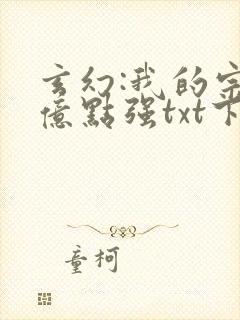 玄幻:我的宗
億點强txt下
童柯